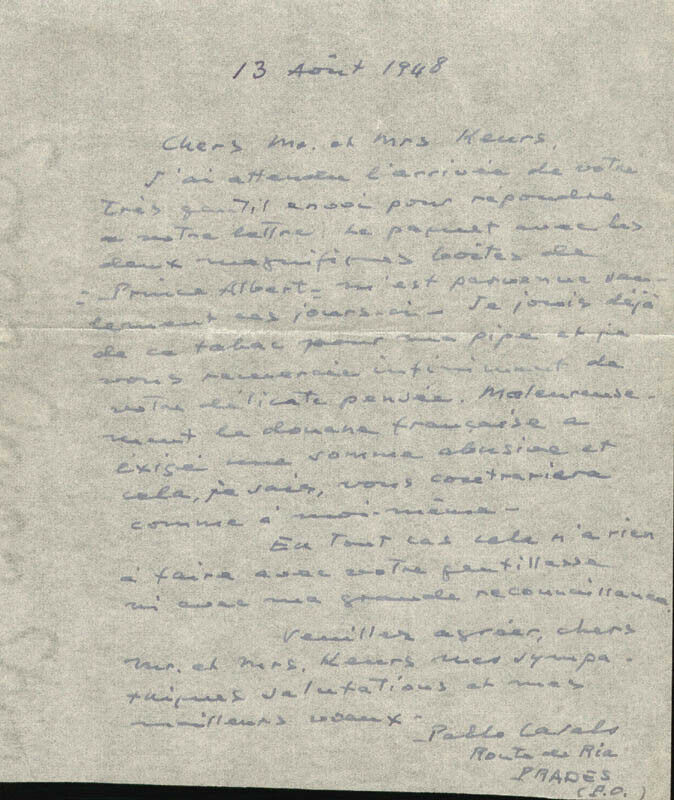 13 Août 1948
Chers Mr. et Mrs Keurs,
J'ai attendu l'arrivée de votre
très gentil envoi pour répondre
a votre lettre. Le paquet avec les
deux magnifiques boîtes de
"Prince Albert" m'est parvenue seu-
lement ces jours-ci - Je jouis déjà
de ce tabac pour ma pipe et je
vous remercie infiniment de
votre délicate pensée. Maleureuse-
ment la douane française a
exigé une somme abusive et
cela, je sais, vous contrariera
comme à moi-même -
En tout cas cela n'a rien
à faire avec votre gentillesse
ni avec ma grande reconnaissance.
Veuillez agréer, chers
Mr. et Mrs. Keurs mes sympa-
thiques salutations et mes
meilleurs voeux -
Pablo Casals
Route de Ria
PRADES
(P.O.)